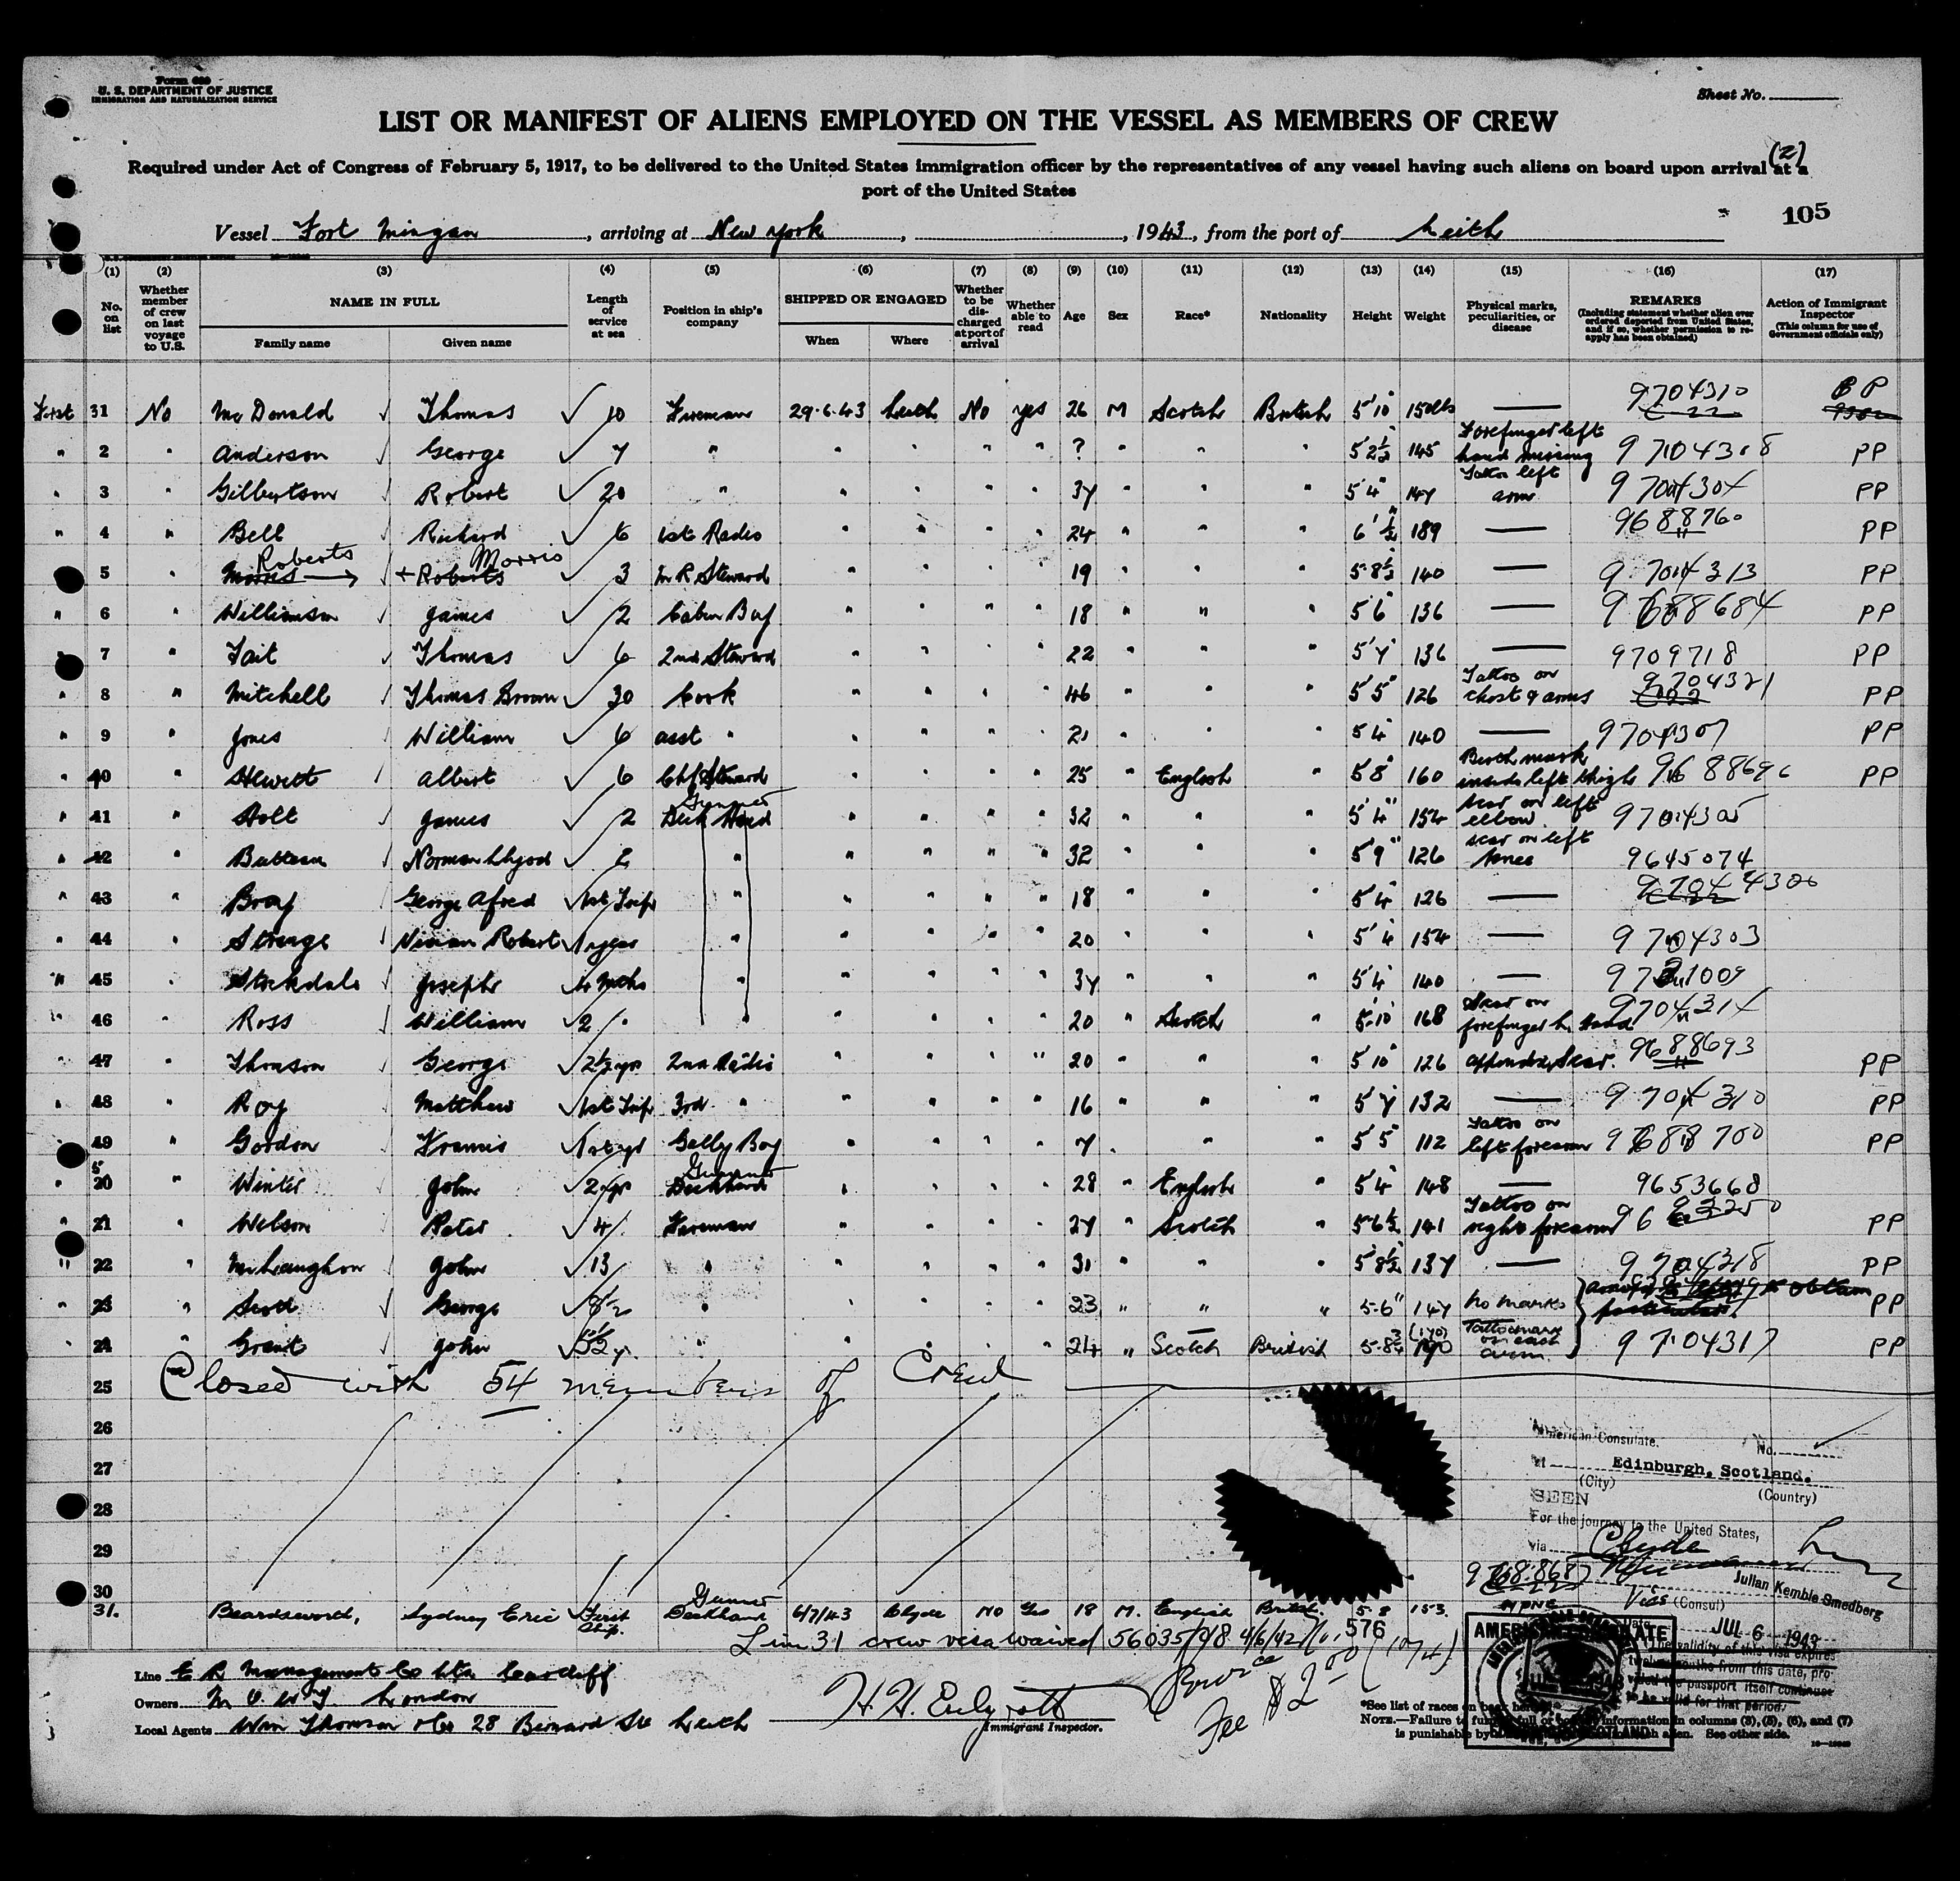 Form 689
U. S. DEPARTMENT OF JUSTICE
IMMIGRATION AND NATURALIZATION SERVICE
Sheet No.
LIST OR MANIFEST OF ALIENS EMPLOYED ON THE VESSEL AS MEMBERS OF CREW
Required under Act of Congress of February 5, 1917, to be delivered to the United States immigration officer by the representatives of any vessel having such aliens on board upon arrival at a
port of the United States
(2)
105
Vessel Fort Mingan, arriving at New York, , 1943, from the port of Leith
(1) (2) (3) (4) (5) (6) (7) (8) (9) (10) (11) (12) (13) (14) (15) (16) (17)
No. on list
Whether member of crew on last voyage to U.S.
NAME IN FULL
Family name Given name
Length of service at sea
Position in ship's company
SHIPPED OR ENGAGED
When Where
Whether to be discharged at port of arrival
Whether able to read
Age
Sex
Race*
Nationality
Height
Weight
Physical marks, peculiarities, or disease
REMARKS
(Including statement whether alien ever ordered deported from United States, and if so, whether permission to reapply has been obtained)
Action of Immigrant Inspector
(This column for use of Government officials only)
First 31 No McDonald Thomas 10 Fireman 29.6.43 Leith No yes 26 M Scotch British 5'10" 150lbs — 9704310 PP
" 2 " Anderson George 7 " " " " " ? " " " 5 2½ 145 Forefinger left hand missing 9704308 PP
" 3 " Gilbertson Robert 20 " " " " " 37 " " " 5'4" 147 Tattoo left arm 9704304 PP
" 4 " Bell Richard 6 1st Radio " " " " 24 " " " 6'½" 189 — 9688760 PP
5 " Roberts Morris 3 M R Steward " " " " 19 " " " 5-8½ 140 — 9704313 PP
" 6 " Williamson James 2 Cabin Boy " " " " 18 " " " 5'6" 136 — 9688684 PP
7 " Tait Thomas 6 2nd Steward " " " " 22 " " " 5'7" 136 — 9709718 PP
" 8 " Mitchell Thomas Brown 30 Cook " " " " 46 " " " 5'5" 126 Tattoo on chest & arms 9704321 PP
" 9 " Jones William 6 asst " " " " " 21 " " " 5'4" 140 — 9704307 PP
" 40 " Hewitt Albert 6 Chf Steward " " " " 25 " English " 5'8" 160 Birth mark inside left thigh 9688696 PP
" 41 " Holt James 2 Gunner Deck Hand " " " " 32 " " " 5'4" 154 scar on left elbow 9704305
" 42 " Norman 2 " " " " " 32 " " " 5'9" 126 scar on left knee 9645074
" 43 " Bray George Alfred 1st Trip " " " " " 18 " " " 5'4" 126 — 9704300
" 44 " Strange Robert 1 year " " " " " 20 " " " 5'4" 154 — 9704303
" 45 " Stockdale Joseph 4 mths " " " " " 37 " " " 5'4" 140 —
" 46 " Ross William 2 " " " " " " 20 " Scotch " 5'10" 168 Scar on forefinger L. hand 9704314
" 47 " Thomson George 2½ yrs 2nd Radio " " " " 20 " " " 5'10" 126 appendix scar. 9688693 PP
" 48 " Roy Matthew 1st Trip 3rd " " " " " 16 " " " 5'7" 132 — 9704310 PP
49 " Gordon Francis Gally Boy " " " " 7 " " " 5'5" 112 Tattoo on left forearm 9688700 PP
" 50 " Winter John 2 yrs Gunner Deckhand " " " " 28 " English " 5'4" 148 — 9653668
" 21 " Wilson Peter 4 Fireman " " " " 27 " Scotch " 5'6½ 141 Tattoo on right forearm PP
" 22 " McLaughlan John 13 " " " " " 31 " " " 5'8½ 137 — 9704318 PP
" 23 " Scott George 8½ " " " " " 23 " " " 5-6" 147 No marks PP
" 24 " Grant John " " " " 24 " Scotch British 5-8¾ (170) Tattoo mark on each arm 9704317 PP
25 Closed with 54 members of Crew
26
27
28
29
30
31. Beardsworth, Sydney Eric First Ship. Gunner Deckhand 6/7/43 Clyde No Yes 18 M. English British. 5-8 153.
Line 31 crew visa waived 56035/98 4/6/42 576
American Consulate. No.
at Edinburgh, Scotland.
(City) (Country)
SEEN
For the journey to the United States,
via Clyde
Julian Kemble Smedberg
Vice (Consul)
Date JUL 6 1943
The validity of this visa expires
twelve months from this date, provided
the passport itself continues
to be valid for that period.
AMERICAN CONSULATE
Service
Fee $2.00
Line Management Co Ltd Cardiff
Owners M.O.W.T. London
Local Agents Wm Thomson & Co 28 Bernard St Leith
Immigrant Inspector.
*See list of races on back hereof.
NOTE.—Failure to furnish full or information in columns (3), (5), (6), and (7)
is punishable by alien. See other side.